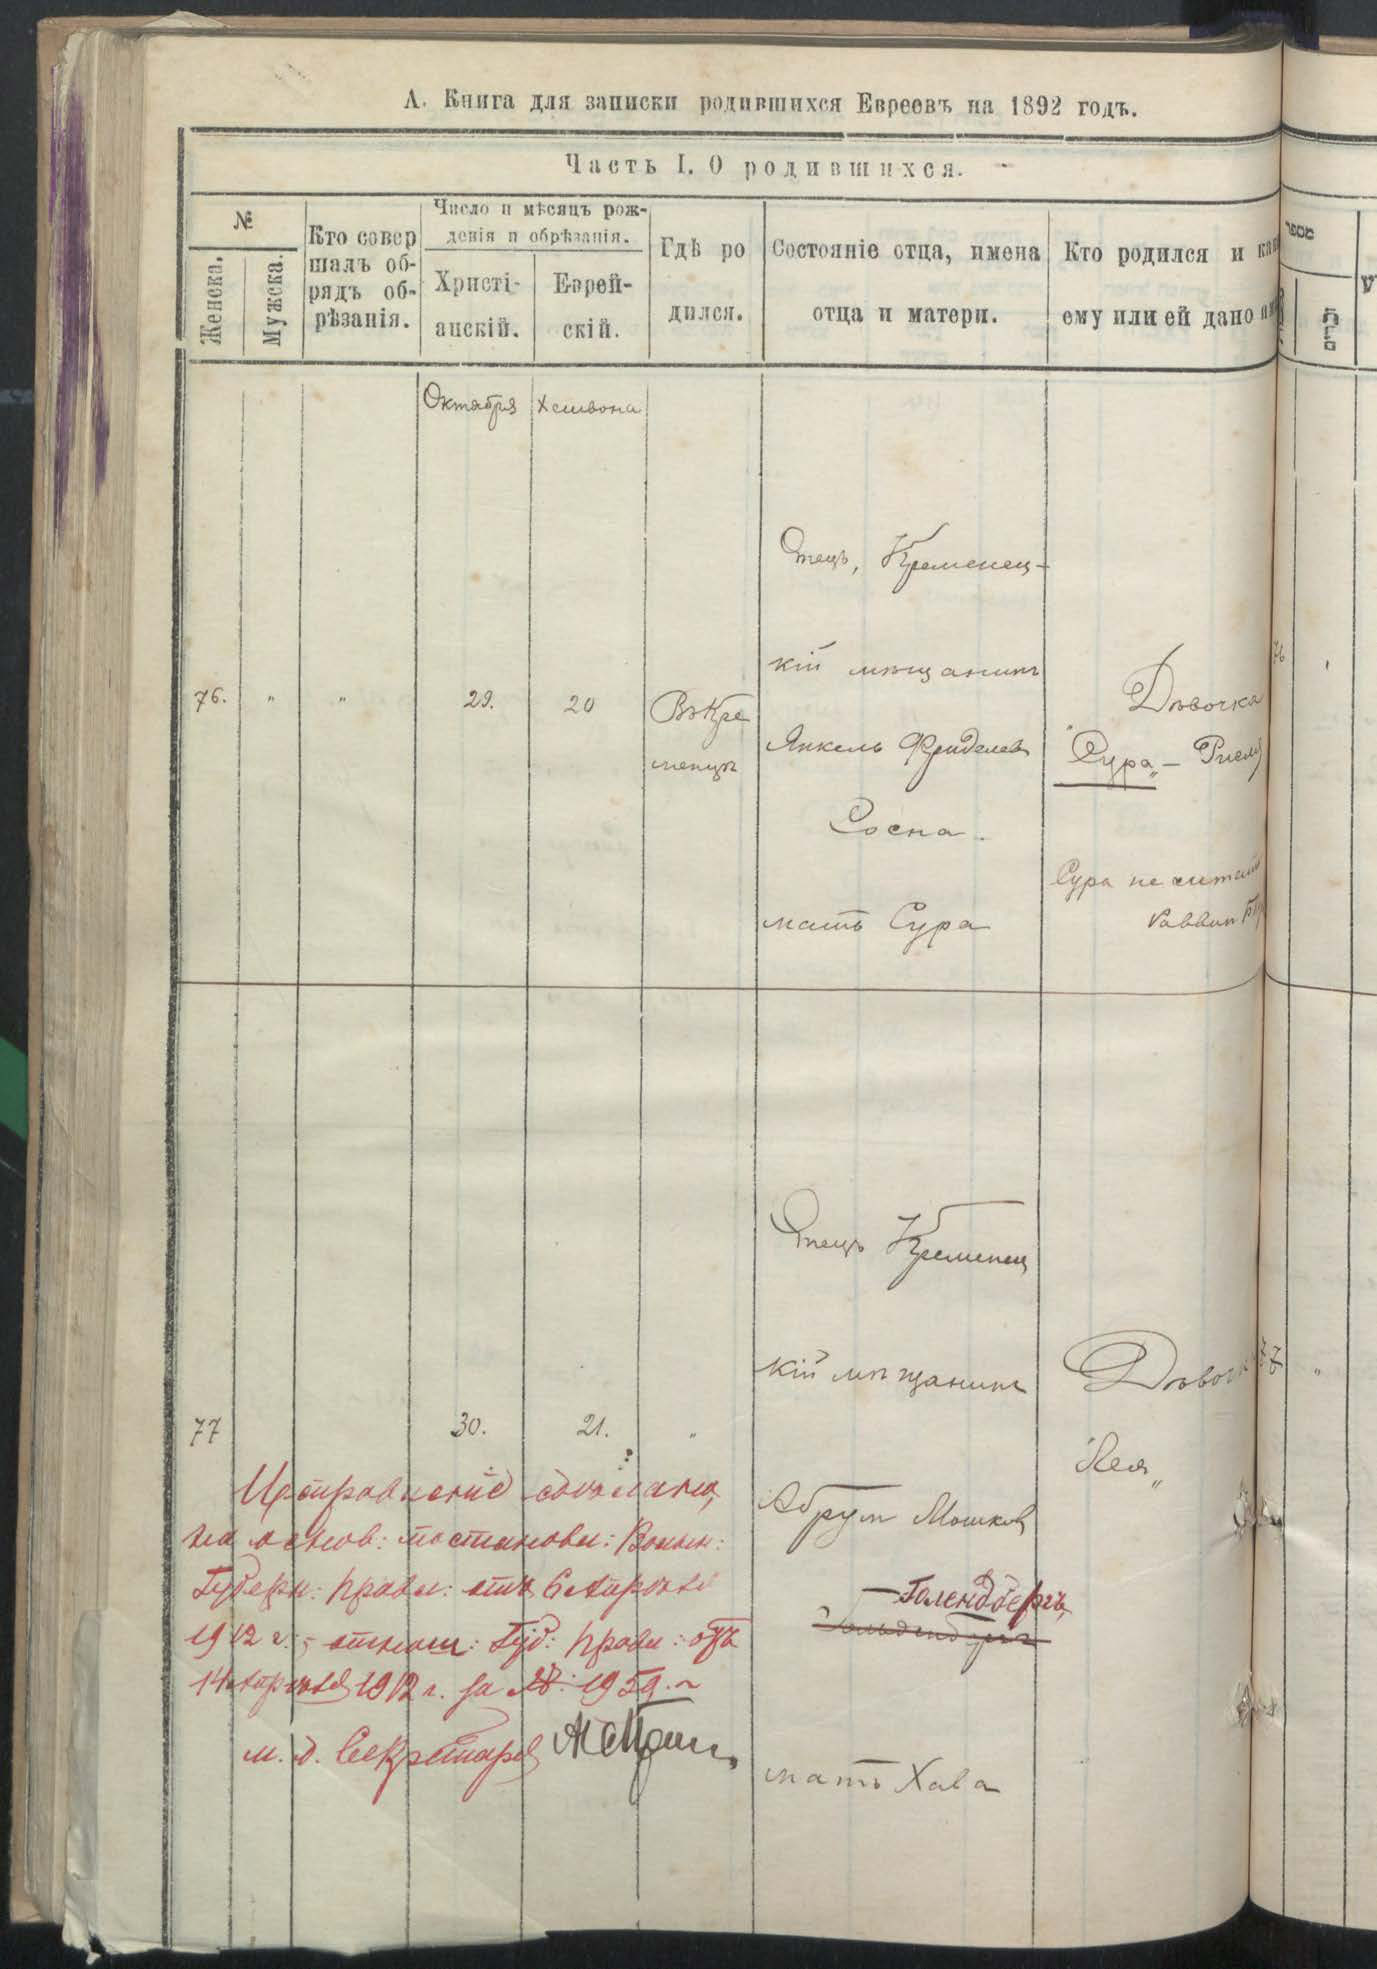 А. Книга для записки родившихся Евреевъ на 1892 годъ.
Часть I. О родившихся.
№
Женска.
Мужска.
Кто совер
шалъ об-
рядъ об-
рѣзанія.
Число и мѣсяцъ рож-
денія и обрѣзанія.
Христі-
анскій.
Еврей-
скій.
Гдѣ ро
дился.
Состояніе отца, имена
отца и матери.
Кто родился и как
ему или ей дано
מספר
זכרים
Октября
Хешвона
76.
"
"
29.
20
Въ Кре
менцѣ
Отецъ, Кременец-
кій мѣщанинъ
Янкель
Сосна.
мать Сура
Дѣвочка
"Сура" –
Сура не считать
76
77
30.
21.
"
Отецъ Кременец
кій мѣщанинъ
Абрум Мошков
–Голендбергъ,
Гольденбергъ
мать Хава
Дѣвочк
"Лея"
77
"
Исправленіе сдѣлано,
на основ: постановл: Волын:
Губерн: Правл: отъ 6 Апрѣля
1912 г.; отнош: Губ: Правл: отъ
14 Апрѣля 1912 г. за №: 1959.
и. д. Секретаря